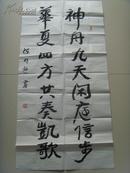 神舟九天闲庭信步
華夏四方共奏凯歌